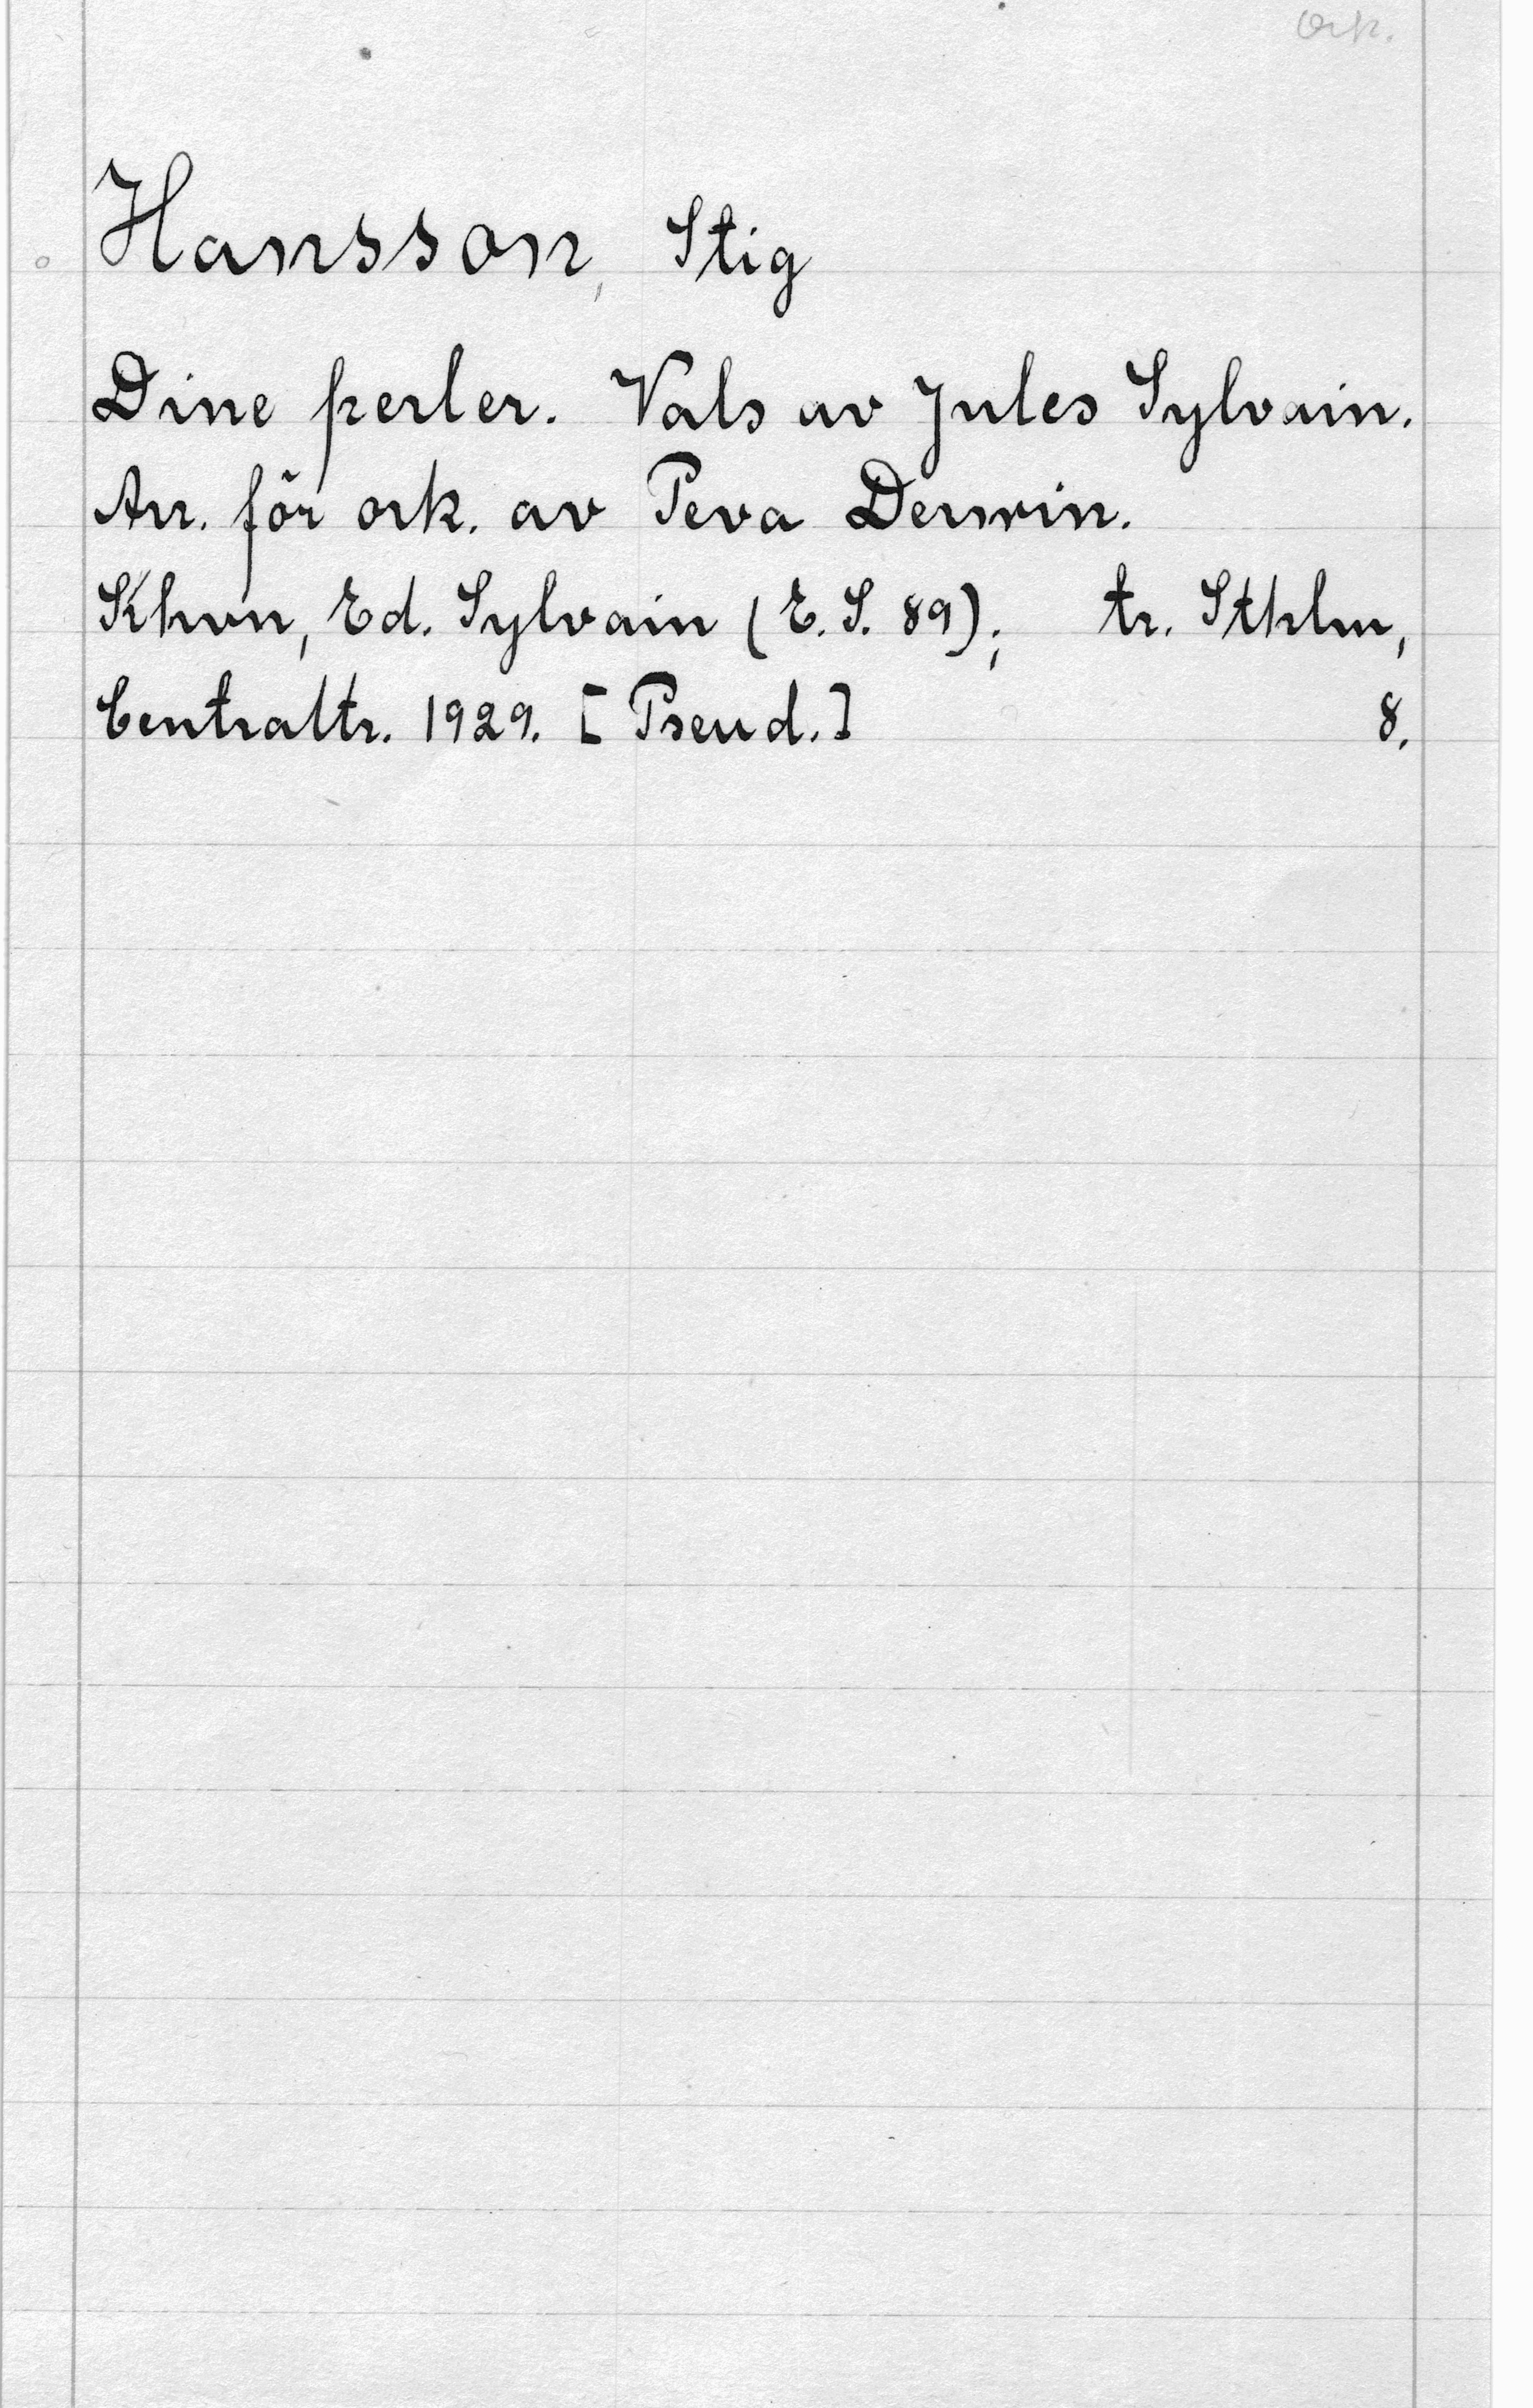 ork.
Hansson, Stig
Dine perler. Vals av Jules Sylvain.
Arr. för ork. av Peva Derwin.
Khvn, Ed. Sylvain (E. S. 89); tr. Sthlm,
Centraltr. 1929. [Pseud.] 8.